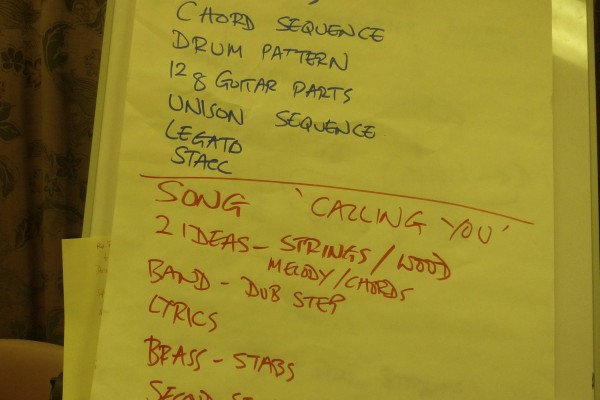 CHORD SEQUENCE
DRUM PATTERN
12 8 GUITAR PARTS
UNISON SEQUENCE
LEGATO
STACC
SONG 'CALLING YOU'
2 IDEAS - STRINGS / WOOD
MELODY / CHORDS
BAND - DUB STEP
LYRICS
BRASS - STABS